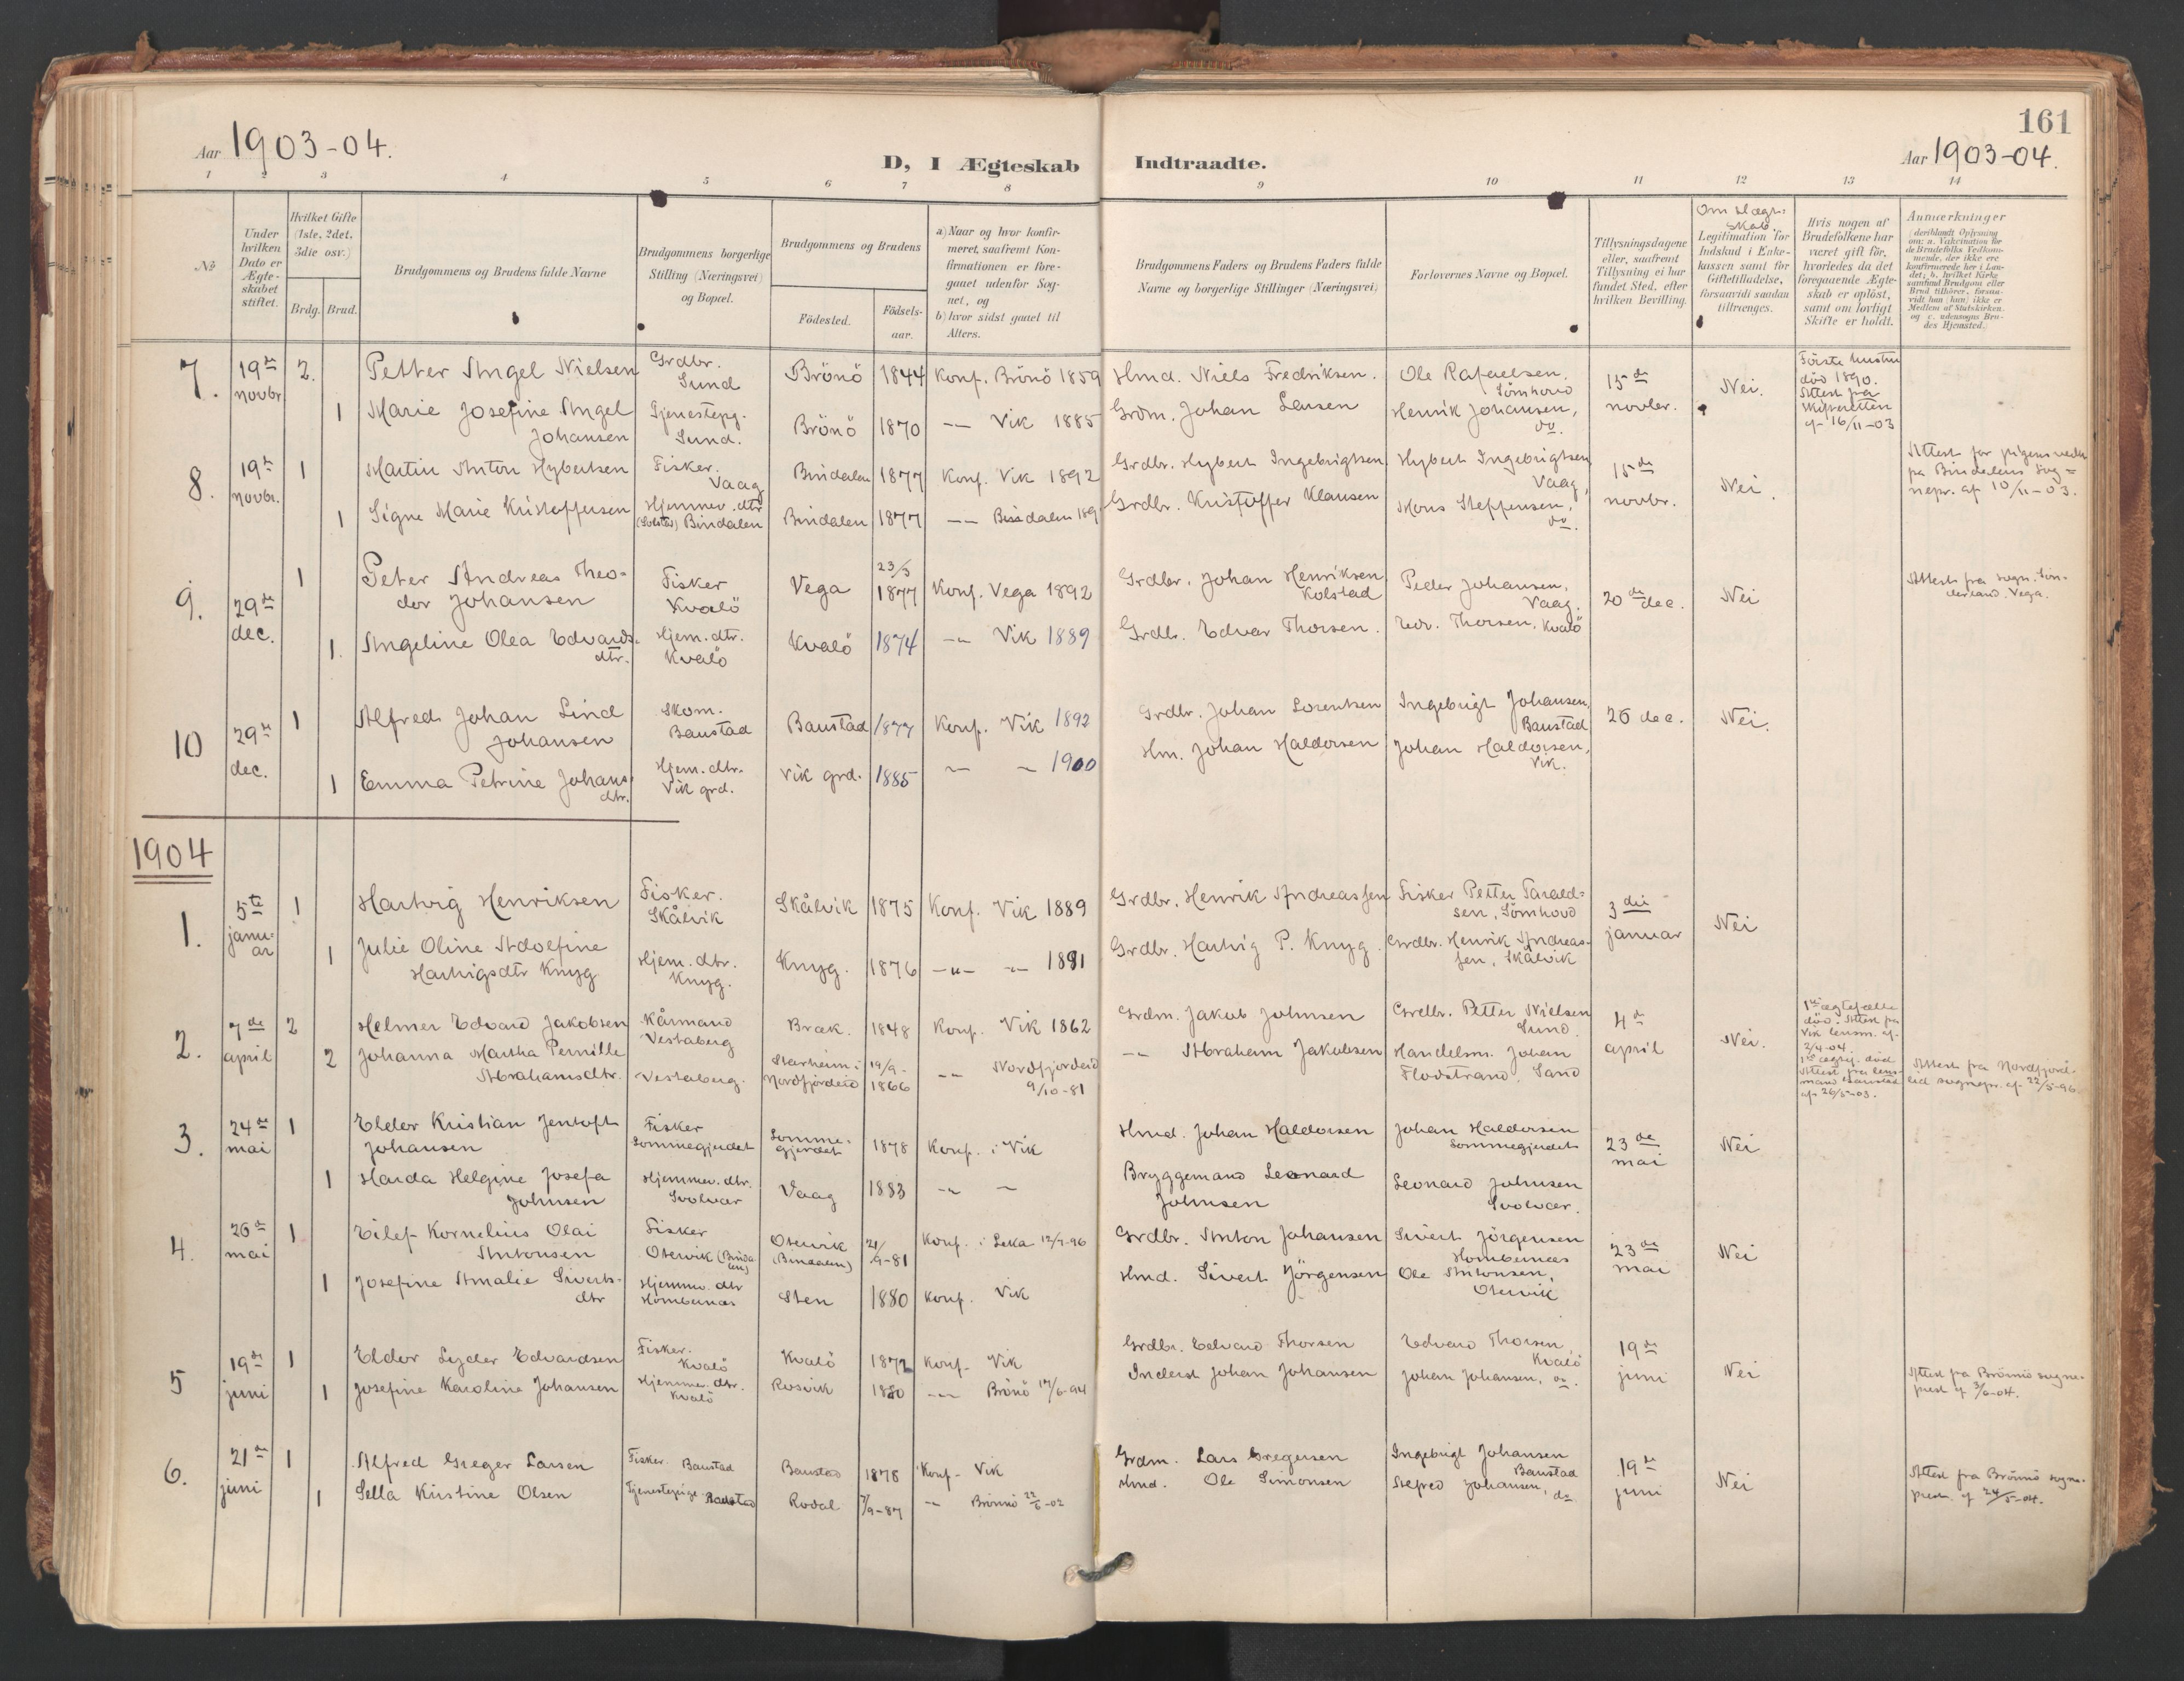 161
Aar 1903-04.
D, I Ægteskab Indtraadte.
Aar 1903-04.
1 2 3 4 5 6 7 8 9 10 11 12 13 14
No
Under hvilken Dato er Ægteskabet stiftet.
Hvilket Gifte (1ste, 2det, 3die osv.)
Brdg. Brud.
Brudgommens og Brudens fulde Navne
Brudgommens borgerlige Stilling (Næringsvei) og Bopæl.
Brudgommens og Brudens
Födested. Födsels-aar.
a) Naar og hvor konfirmeret, saafremt Konfirmationen er foregaaet udenfor Sognet, og
b) hvor sidst gaaet til Alters.
Brudgommens Faders og Brudens Faders fulde Navne og borgerlige Stillinger (Næringsvei)
Forlovernes Navne og Bopæl.
Tillysningsdagene eller, saafremt Tillysning ei har fundet Sted, efter hvilken Bevilling.
Om slægtskab.
Legitimation for Indskud i Enkekassen samt for Giftetilladelse, forsaavidt saadan tiltrænges.
Hvis nogen af Brudefolkene har været gift för, hvorledes da det foregaaende Ægteskab er oplöst, samt om lovligt Skifte er holdt.
Anmærkninger
(deriblandt Oplysning om: a. Vakcination for de Brudefolks Vedkommende, der ikke ere konfirmerede her i Landet; b. hvilket Kirkesamfund Brudgom eller Brud tilhörer, forsaavidt han (hun) ikke er Medlem af Statskirken, og c. udensogns Brudes Hjemsted.
7. 19de novbr 2. Petter Angel Nielsen Grdbr. Sund Brönö 1844 Konf. Brönö 1859 Hmd. Niels Fredriksen. Ole Rafaelsen, Sömhovd 15de novbr. Nei. Förste hustru död 1890. Attest fra skifteretten af 16/11-03
1 Marie Josefine Angel Johansen Tjenestepg. Sund. Brönö 1870 -"- Vik 1885 Grdm. Johan Larsen Henrik Johansen, do.
8. 19de novbr. 1 Martin Anton Hybertsen Fisker. Vaag Bindalen 1877 Konf. Vik 1892 Grdbr. Hybert Ingebrigtsen Hybert Ingebrigtsen Vaag, 15de novbr. Nei. Attest for pigens vedk. fra Bindalens sognepr. af 10/11-03.
1 Signe Marie Kristoffersen Hjemmev. dtr (Solstad) Bindalen Bindalen 1877 -"- Bindalen 189 Grdbr. Kristoffer Klausen Mons Steffensen, do.
9. 29de dec. 1 Peter Andreas Theodor Johansen Fisker Kvalö Vega 23/3 1877 Konf. Vega 1892 Grdbr. Johan Henriksen Kolstad Peder Johansen, Vaag. 20de dec. Nei Attest fra sogn. Sönderland. Vega.
1. Angeline Olea Edvardsdtr. Hjem. dtr. Kvalö Kvalö 1874 -"- Vik 1889 Grdbr. Edvar Thorsen. Edv. Thorsen, Kvalö
10 29de dec. 1 Alfred Johan Lind Johansen Skom. Baustad Baustad 1877 Konf. Vik 1892 Grdbr. Johan Lorentsen Ingebrigt Johansen, Baustad 26 dec. Nei.
1 Emma Petrine Johansdtr. Hjem. dtr. Vik grd. Vik grd. 1885 " " 1900 Hm. Johan Haldorsen Johan Haldorsen, Vik.
1904
1. 5te januar 1 Hartvig Henriksen Fisker. Skålvik Skålvik 1875 Konf. Vik 1889 Grdbr. Henrik Andreassen Fisker Petter Taraldsen, Sömhovd 3die januar Nei
1 Julie Oline Adolfine Hartvigsdtr Knyg Hjem. dtr. Knyg. Knyg. 1876 -"- -"- 1891 Grdbr. Hartvig P. Knyg. Grdbr. Henrik Andreassen, Skålvik
2. 7de april 2 Helmer Edvard Jakobsen Kårmand Vestaberg Bræk. 1848 Konf. Vik 1862 Grdm. Jakob Johnsen Grdbr. Petter Nielsen Sund 4de april Nei. 1ste ægtefælle död. Attest fra Vik lensm. af 2/4-04
2 Johanna Martha Pernille Abrahamsdtr. Vestaberg. Starheim i Nordfjordeid 19/9-1866 -"- Nordfjordeid 9/10-81 -"- Abraham Jakobsen Handelsm. Johan Flovstrand, Sand 1ste ægtef. död Attest fra lensmand af 26/5-03. Attest fra Nordfjordeid sognepr. af 22/5-96
3. 24de mai 1 Eldor Kristian Jentoft Johansen Fisker Sommegjerdet Sommegjerdet 1878 Konf. i Vik Hmd. Johan Haldorsen Johan Haldorsen Sommegjerdet 23de mai Nei
1 Harda Helgine Josefa Johnsen Hjemmev. dtr. Svolvær Vaag 1883 -"- " Bryggemand Leonard Johnsen Leonard Johnsen Svolvær.
4. 26de mai 1 Eilef Kornelius Olai Antonsen Fisker Otervik (Bindalen) Otervik (Bindalen) 21/9-81 Konf. i Leka 12/7-96 Grdbr. Anton Johansen Sivert Jörgensen Hombornes 23de mai Nei
1 Josefine Amalie Sivertsdtr Hjemmev. dtr Hombornes Sten 1880 Konf. Vik Hmd. Sivert Jörgensen Ole Antonsen, Otervik
5 19de juni 1 Eldor Lyder Edvardsen Fisker. Kvalö Kvalö 1872 Konf. Vik Grdbr. Edvard Thorsen Edvard Thorsen, Kvalö 19de juni Nei
1 Josefine Karoline Johansen Hjemme. dtr. Kvalö Rosvik 1880 -"- Brönö 17/6-94 Inderst Johan Johansen Johan Johansen, do. Attest fra Brönnö sogneprest af 3/6-04.
6. 21de juni 1 Alfred Greger Larsen Fisker Baustad Baustad 1878 Konf. Vik Grdm. Lars Gregersen Ingebrigt Johansen Baustad 19de juni Nei Attest fra Brönnö sogneprest. af 24/5-04.
1 Sella Kristine Olsen Tjenestepige Baustad Rodal 7/9-87 -"- Brönnö 22/6-02 Hmd. Ole Simonsen Alfred Johansen, do